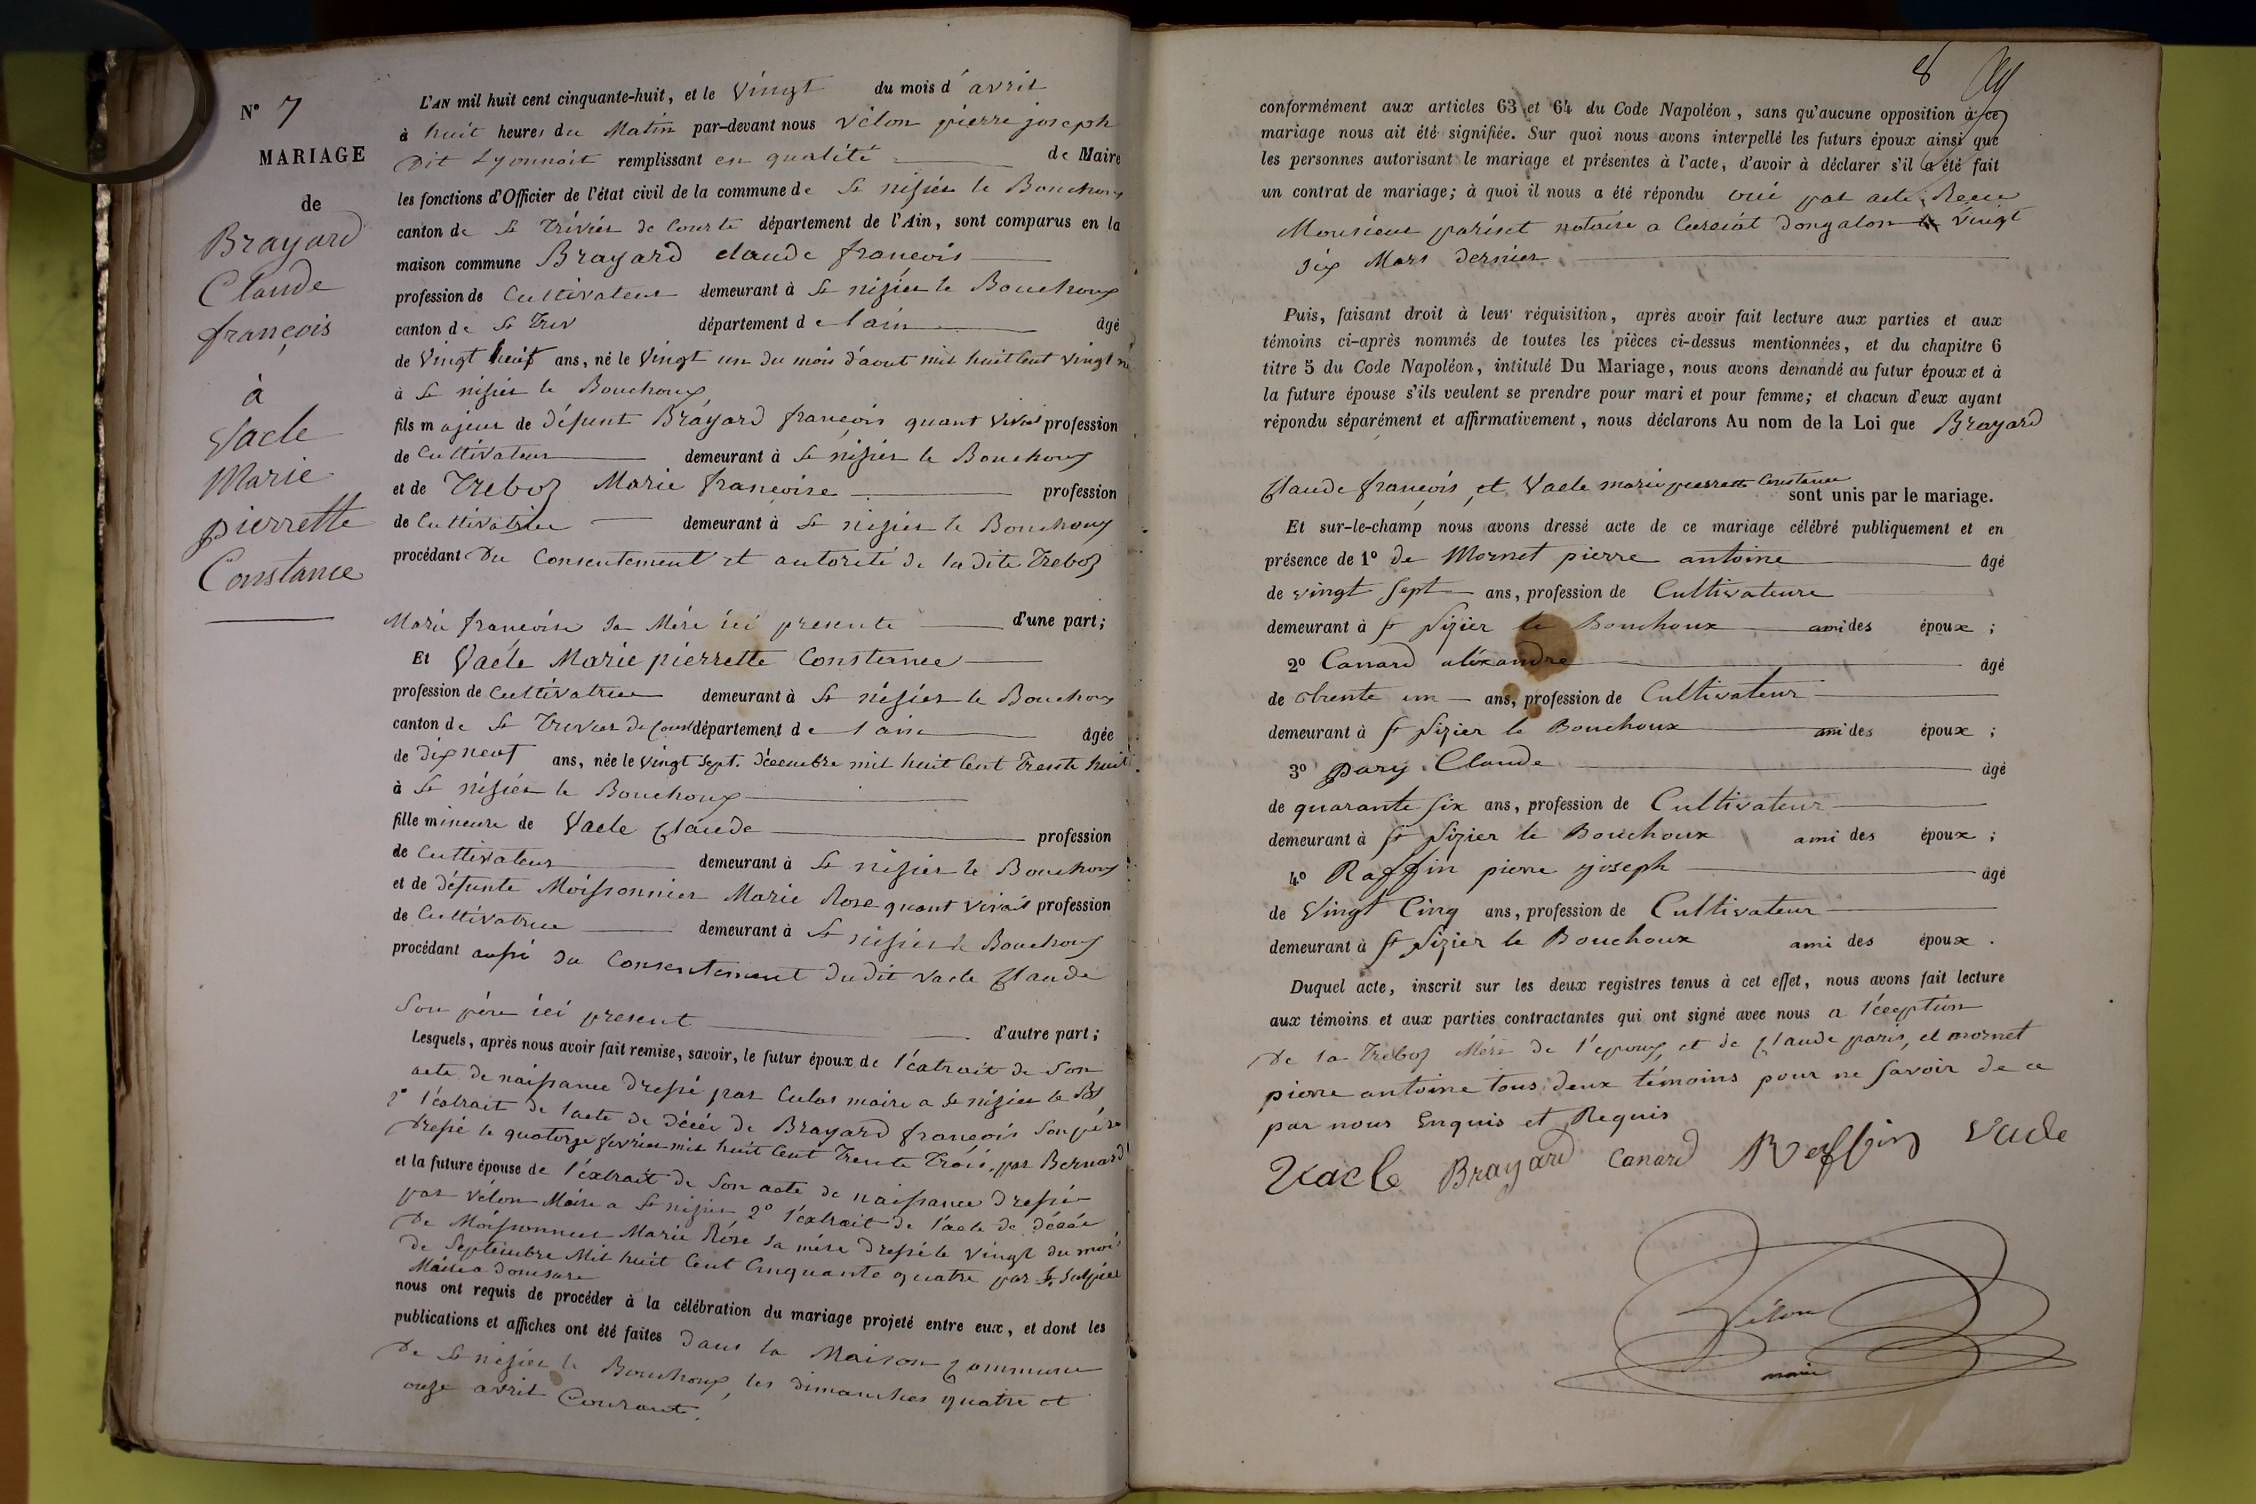 N° 7
MARIAGE
de
Brayard
Claude
françois
à
Vacle
Marie
pierrette
Constance
L'AN mil huit cent cinquante-huit, et le Vingt du mois d'avril
à huit heures du Matin par-devant nous Vélon pierre joseph
Dit Lyonnait remplissant en qualité de Maire
les fonctions d'Officier de l'état civil de la commune de St nisier le Bouchoux
canton de St Trivier de Courte département de l'Ain, sont comparus en la
maison commune Brayard claude françois
profession de Cultivateur demeurant à St nizier le Bouchoux
canton de St Triv département de lain âgé
de Vingt huit ans, né le Vingt un du mois d'aout mil huit Cent Vingt
à St nizier le Bouchoux
fils majeur de défunt Brayard françois quant Vivait profession
de Cultivateur demeurant à St nizier le Bouchoux
et de Treboz Marie françoise profession
de Cultivatrice demeurant à St nizier le Bouchoux
procédant Du Consentement et autorité de la dite Treboz
Marie françoise sa Mére ici presente d'une part;
Et Vacle Marie pierrette Constance
profession de Cultivatrice demeurant à St nésier le Bouchoux
canton de St Trivier de Cour département de l'ain âgée
de dix neuf ans, née le Vingt sept. Décembre mil huit Cent Trente huit
à St nésiér le Bouchoux
fille mineure de Vacle Claude profession
de Cultivateur demeurant à St nizier le Bouchoux
et de défunte Moissonnier Marie Rose quant vivait profession
de Cultivatrice demeurant à St nizier le Bouchoux
procédant aussi du Consentement du dit Vacle Claude
Son pére ici present d'autre part;
Lesquels, après nous avoir fait remise, savoir, le futur époux de l'éxtrait de Son
acte de naissance Dressé par Culas maire a St nizier le Bx
2° l'éxtrait de l'acte de Décée de Brayard françois Son pére
Dressé le quatorze fevrier mil huit Cent Trente Trois, par Bernard
et la future épouse de l'éxtrait de Son acte de naissance Dressé
par Vélon Maire a St nizier 2° l'éxtrait de l'acte de décée
De Moissonnier Marie Rose Sa mére Dressé le Vingt du mois
de Septembre Mil huit Cent Cinquante quatre par St Sulpice
Maire a Domsure
nous ont requis de procéder à la célébration du mariage projeté entre eux, et dont les
publications et affiches ont été faites Dans la Maison Commune
De St nizier le Bouchoux, les dimanches quatre et
onze avril Courant.
8
conformément aux articles 63 et 64 du Code Napoléon, sans qu'aucune opposition à ce
mariage nous ait été signifiée. Sur quoi nous avons interpellé les futurs époux ainsi que
les personnes autorisant le mariage et présentes à l'acte, d'avoir à déclarer s'il a été fait
un contrat de mariage; à quoi il nous a été répondu oui par acte Recu
Monsieur pariset notaire a Curciat Dongalon Vingt
six Mars Dernier
Puis, faisant droit à leur réquisition, après avoir fait lecture aux parties et aux
témoins ci-après nommés de toutes les pièces ci-dessus mentionnées, et du chapitre 6
titre 5 du Code Napoléon, intitulé Du Mariage, nous avons demandé au futur époux et à
la future épouse s'ils veulent se prendre pour mari et pour femme; et chacun d'eux ayant
répondu séparément et affirmativement, nous déclarons Au nom de la Loi que Brayard
Claude françois, et Vacle marie pierrette Constance sont unis par le mariage.
Et sur-le-champ nous avons dressé acte de ce mariage célébré publiquement et en
présence de 1° de Mornet pierre antoine âgé
de vingt sept ans, profession de Cultivateure
demeurant à St Nizier le Bouchoux ami des époux;
2° Canard aléxandre âgé
de trente un ans, profession de Cultivateur
demeurant à St Nizier le Bouchoux ami des époux;
3° pary Claude âgé
de quarante six ans, profession de Cultivateur
demeurant à St Nizier le Bouchoux ami des époux;
4° Raffin pierre joseph âgé
de Vingt Cinq ans, profession de Cultivateur
demeurant à St Nizier le Bouchoux ami des époux.
Duquel acte, inscrit sur les deux registres tenus à cet effet, nous avons fait lecture
aux témoins et aux parties contractantes qui ont signé avec nous a l'éception
De la Treboz Mére de l'epoux, et de Claude paris, et mornet
pierre antoine tous deux témoins pour ne Savoir de ce
par nous Enquis et Requis
Vacle Brayard Canard Raffin Vacle
Vélon
maire